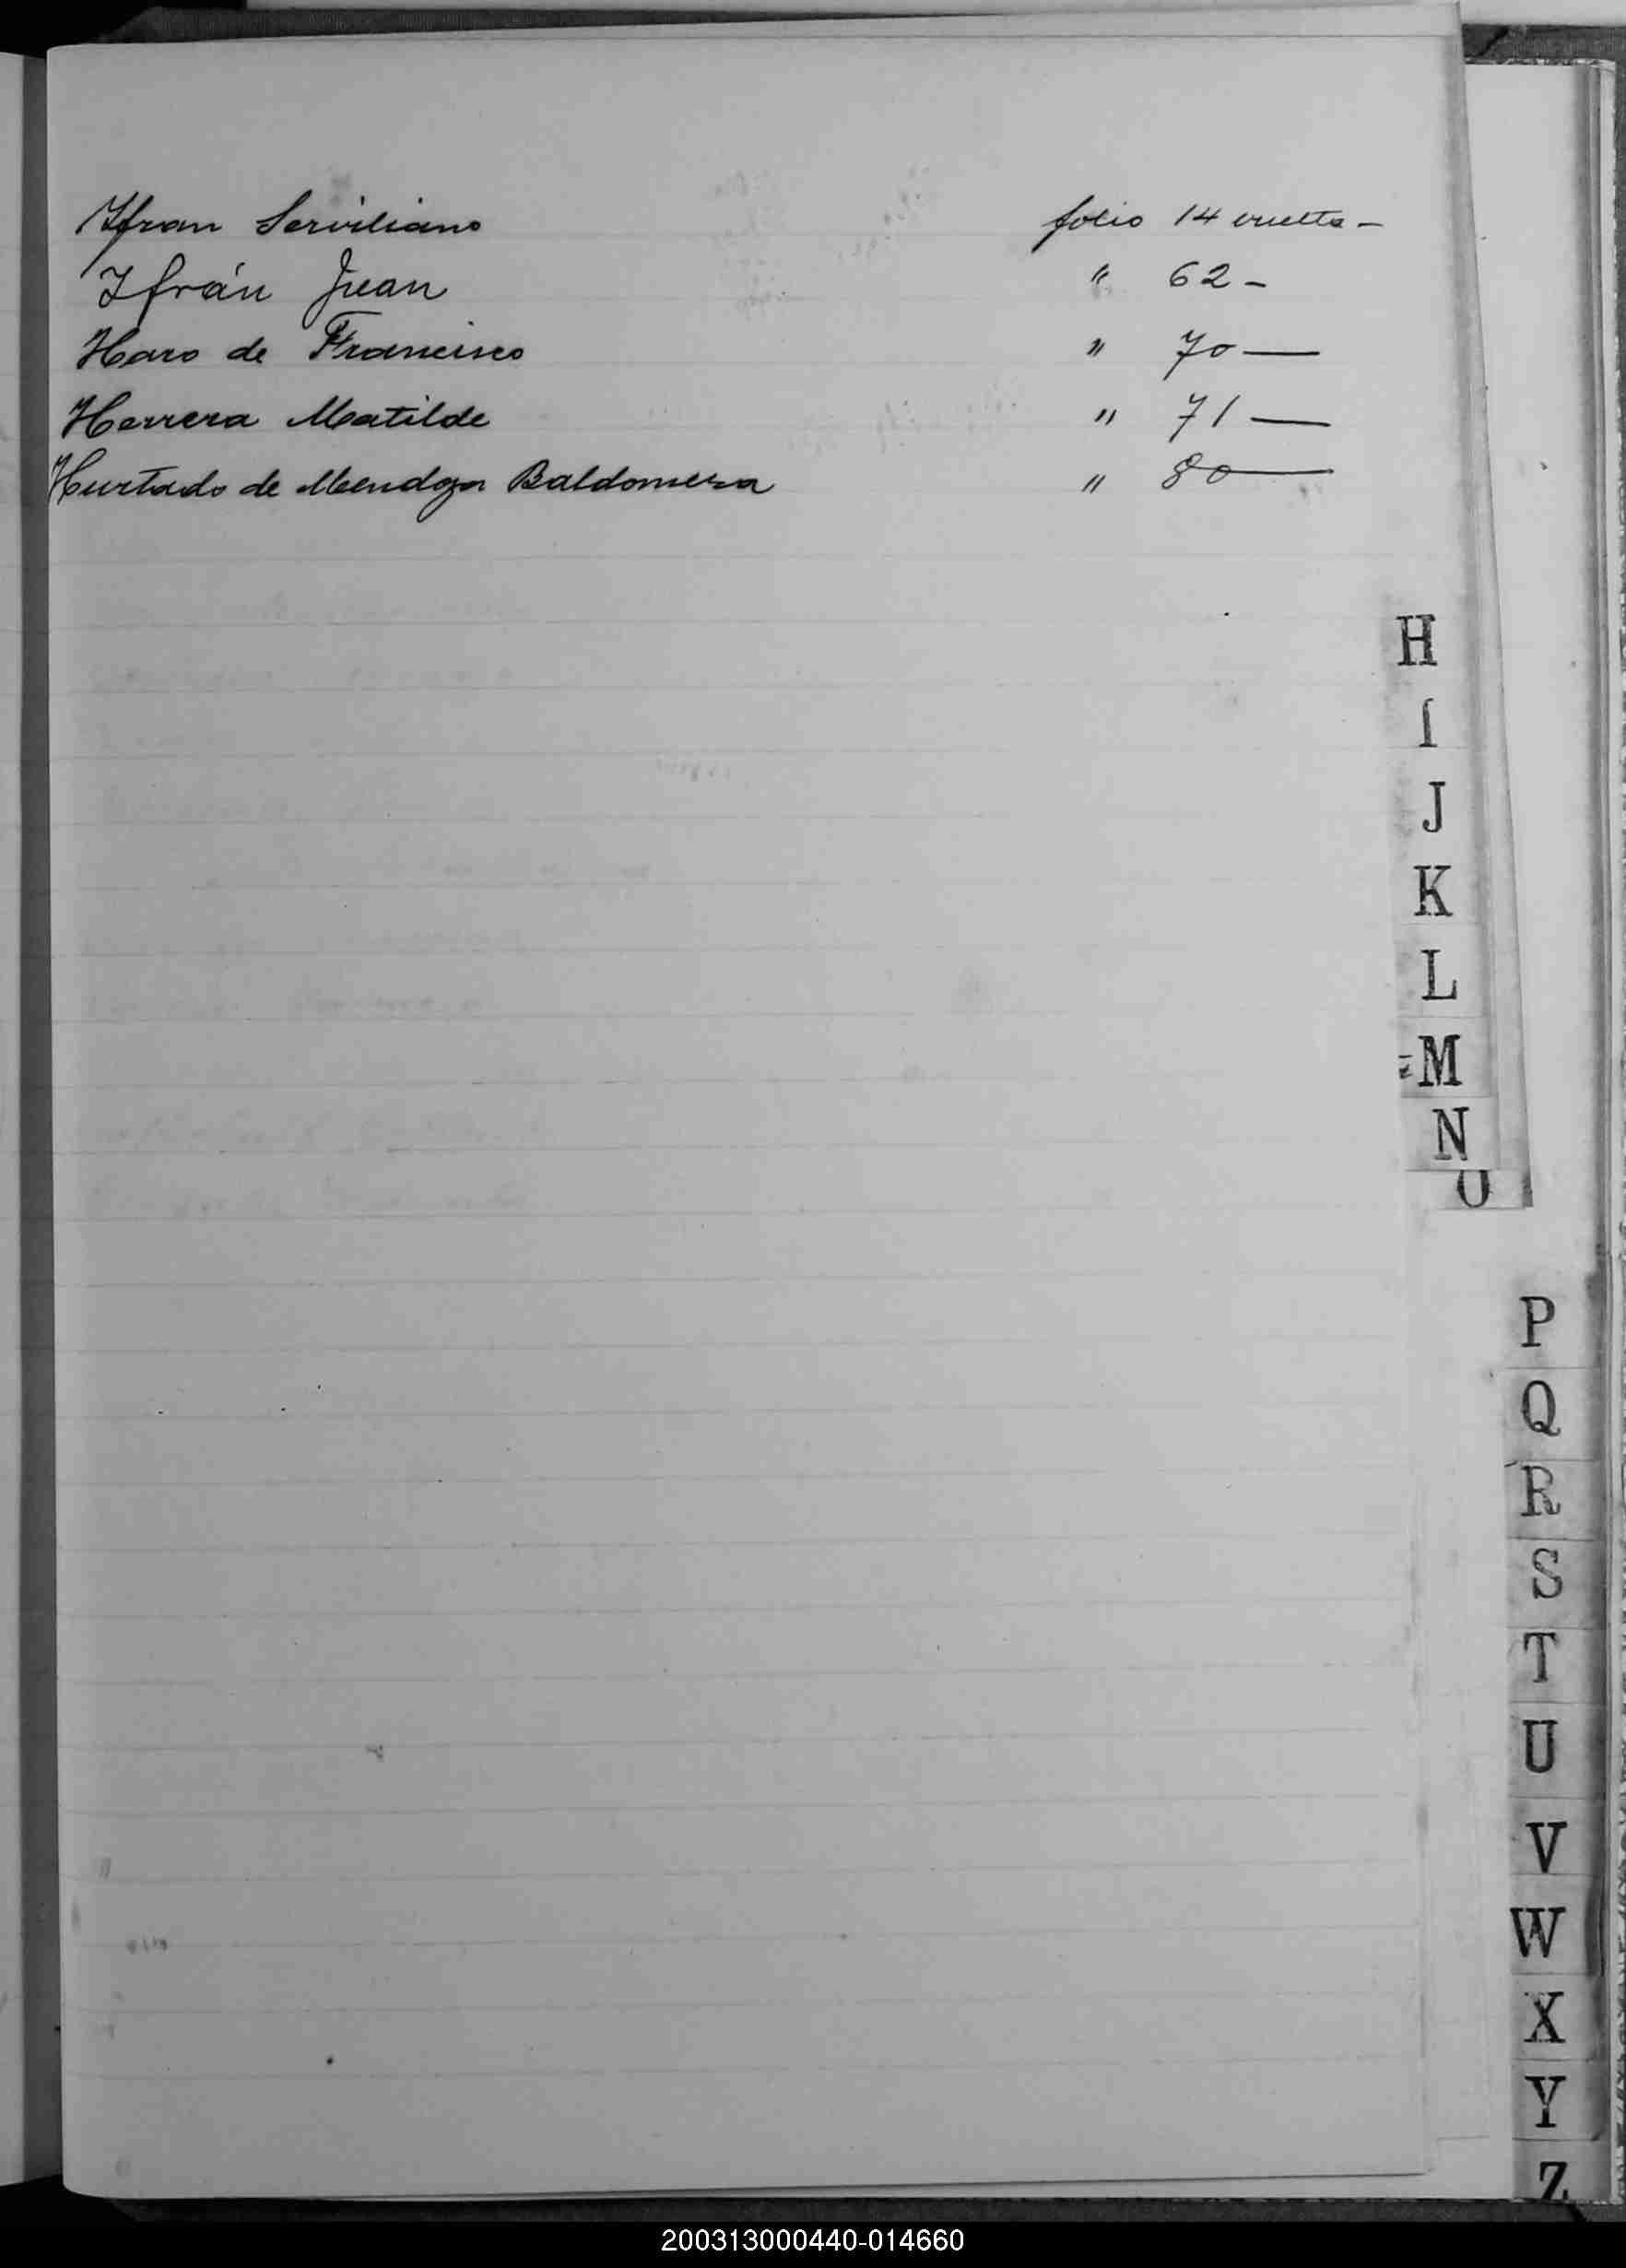 Ifran Serviliano folio 14 vuelta -
Ifrán Juan " 62 -
Haro de Francisco " 70 —
Herrera Matilde " 71 —
Hurtado de Mendoza Baldomera " 80 —
H
I
J
K
L
M
N
O
P
Q
R
S
T
U
V
W
X
Y
Z
200313000440-014660